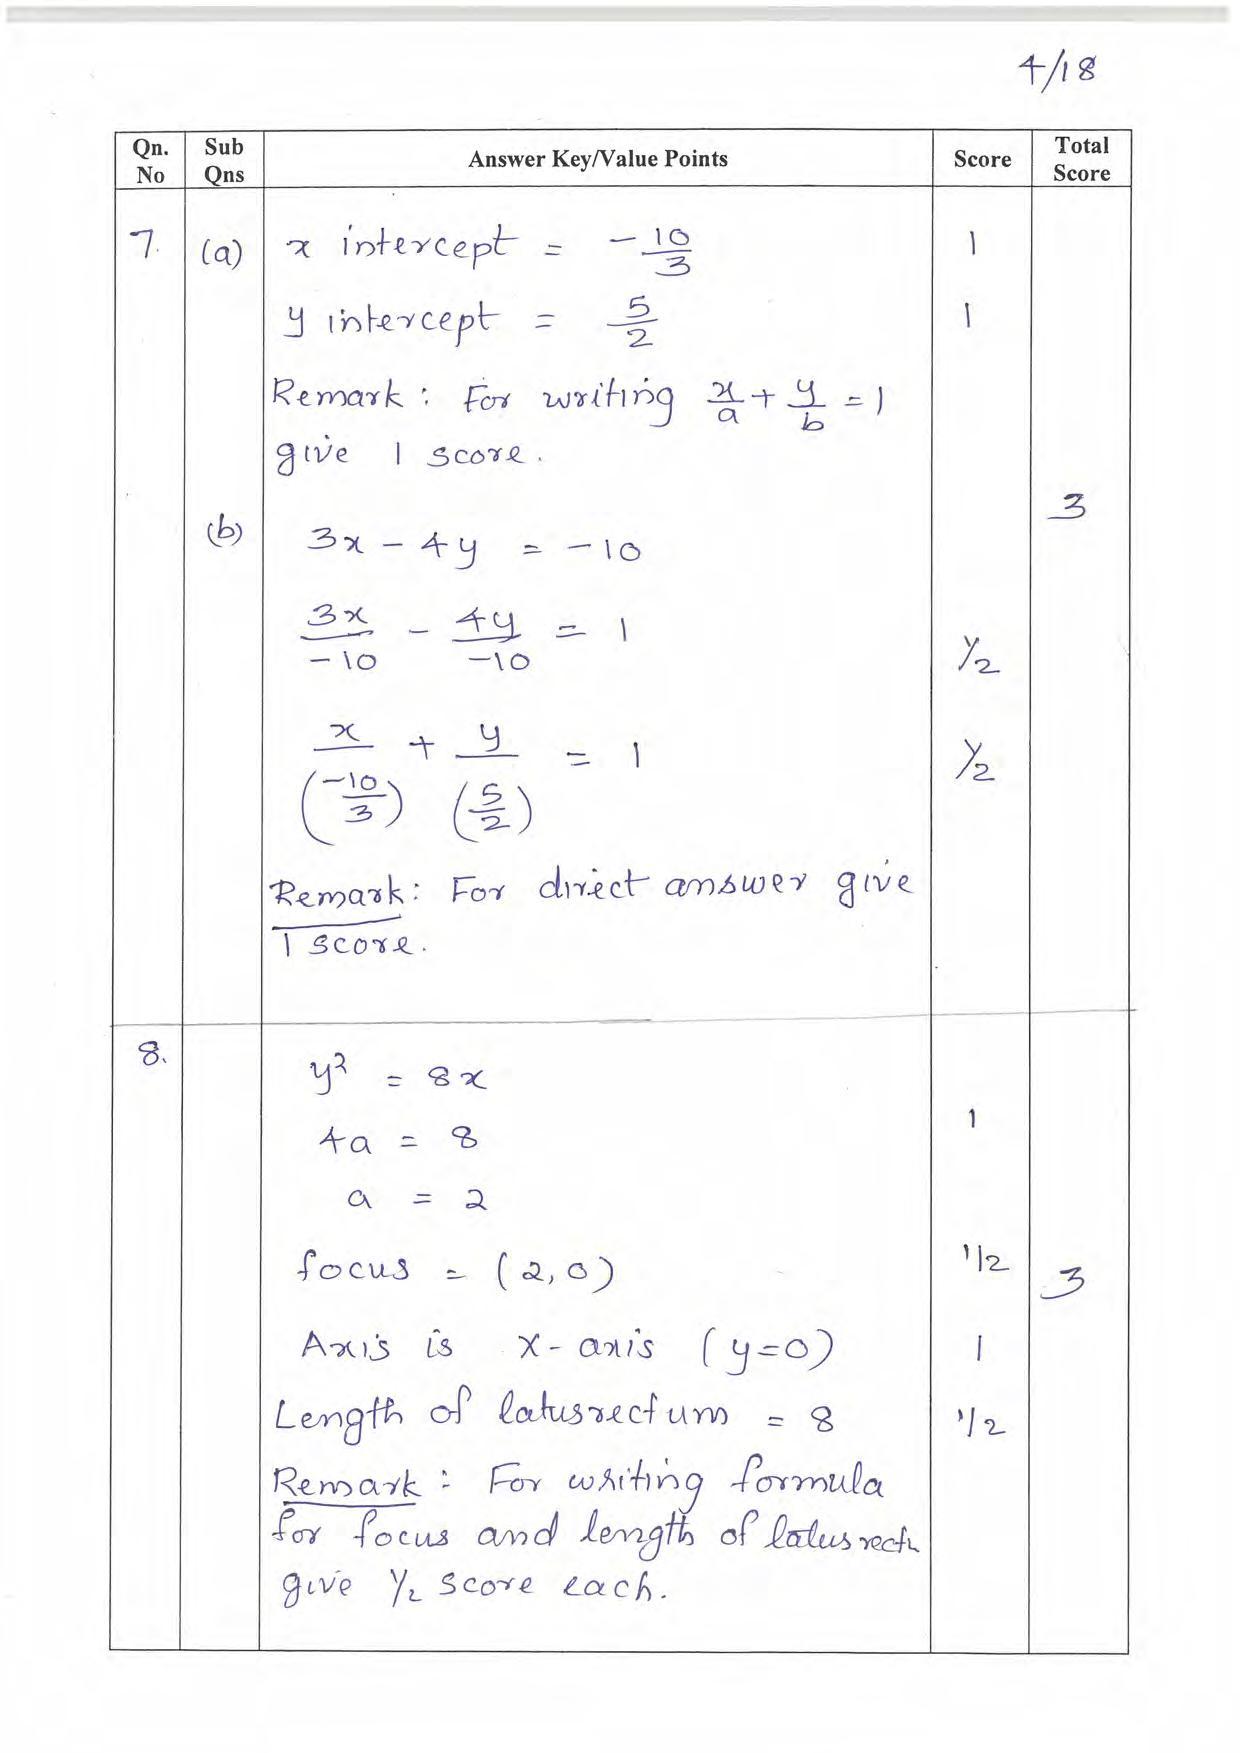 4/18
Qn. No Sub Qns Answer Key/Value Points Score Total Score
7. (a) x intercept = -10/3 1
y intercept = 5/2 1
Remark : For writing x/a + y/b = 1
give 1 score.
3
(b) 3x - 4y = -10
3x/-10 - 4y/-10 = 1 1/2
x/(-10/3) + y/(5/2) = 1 1/2
Remark : For direct answer give
1 score.
8. y² = 8x
4a = 8 1
a = 2
focus = (2,0) 1/2 3
Axis is x-axis (y=0) 1
Length of latusrectum = 8 1/2
Remark : For writing formula
for focus and length of latus rectu
give 1/2 score each.